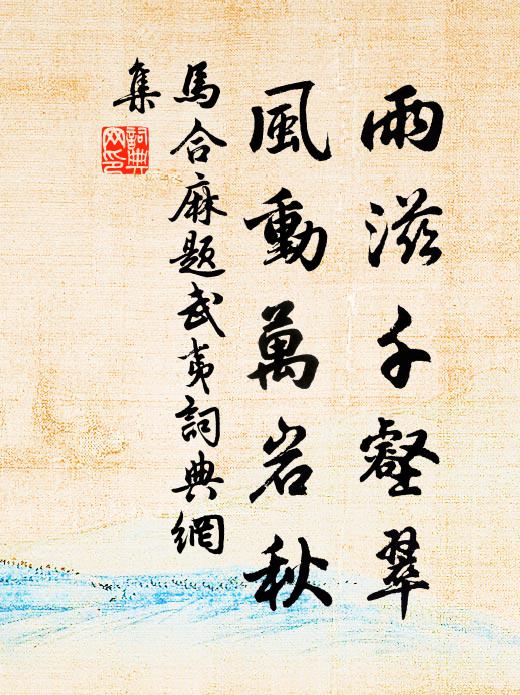 雨滋千壑翠
風動萬岩秋
馬合麻題武夷詞典網
集
詞典網印